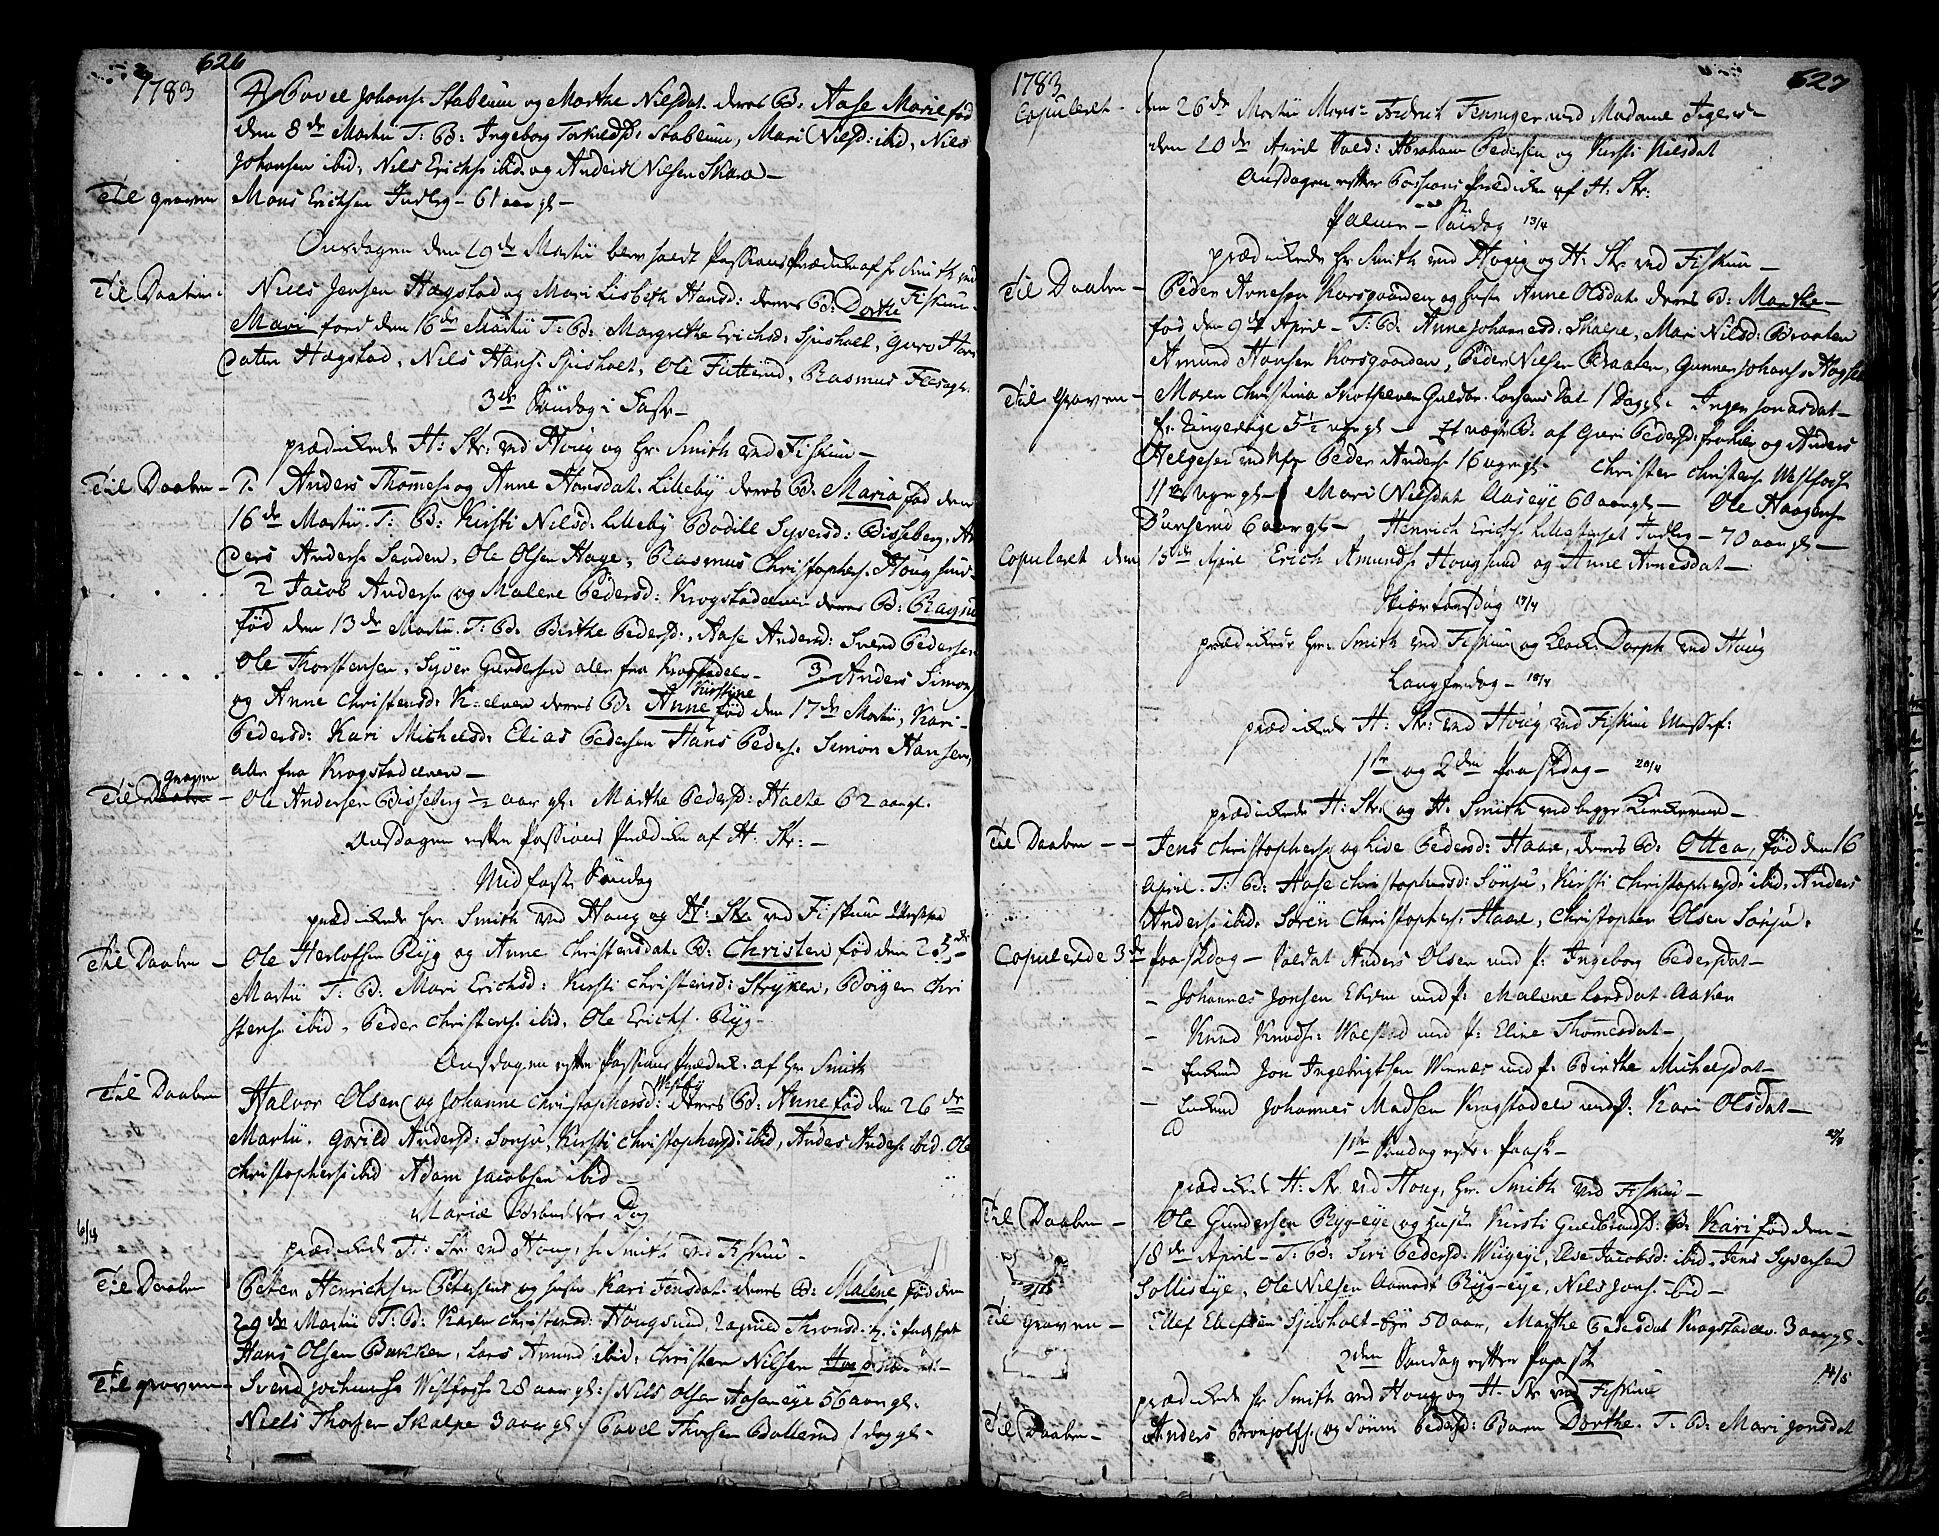 626
1783
4/ Povel Johans: Stablum og Marthe Nilsdat. deres B: Aase Marie fød
den 8de Martii T: B: Ingeborg Torkelsd: Stablum, Mari Nilsd: ibid, Nils
Johansen ibid, Nils Erichs: ibid. og Anders Nilsen Skara –
Til graven Mons Erichsen Inderg – 61 aar gl. –
Onsdagen den 19de Martii blev holdt Passions Prædiken af Hr Smith ved
Fiskum
Til Daaben Niels Jensen Hægstad og Mari Lisbeth Hansd: deres B: Dorthe
Mari fød den 16de Martii T: B: Margrethe Erichsd: Sjusholt, Guro Hans
daten Hægstad, Nils Hans: Sjusholt, Ole Futterud, Rasmus
3de Søndag i Faste
prædikede H: Str: ved Houg og Hr. Smith ved Fiskum –
Til Daaben – 1. Anders Thomes: og Anne Hansdat. Lilleby deres B: Maria fød den
16de Martii. T: B: Kirsti Nilsd: Lilleby Bodill Syversd: Bisseberg, An
ders Anders: Sanden, Ole Olsen Hage, Rasmus Christophers: Hougsund –
2 Jacob Anders: og Malene Pedersd: Krogstadelven deres B: Ragne
fød den 13de Martii. T: B: Birthe Pedersd:, Aase Andersd: Svend Pedersen
Ole Thorstensen, Syver Gundersen alle fra Krogstadel. – 3 Anders Simons:
Kirstine
og Anne Christensd: K:elven deres B: Anne fød den 17de Martii, Kari
Pedersd: Kari Michelsd: Elias Pedersen Hans Peders: Simon Hansen,
alle fra Krogstadelven –
graven
Til Daaben – Ole Andersen Bisseberg ½ aar gl: Marthe Pedersd: Halte 62 aar gl.
Onsdagen efter Passions Prædiken af H: Str: –
Midfaste Søndag
prædikede Hr. Smith ved Houg og H: Str ved Fiskum
Til Daaben – Ole Herlofsen Ryg og Anne Christensdat. B: Christen fød den 23de
Martii T: B: Mari Erichsd: Kirsti Christensd: Stryken, Börger Chri
stens: ibid, Peder Christens: ibid. Ole Erichs. Ryg –
Onsdagen efter Passions Prædik. af Hr Smith
Vestby
Til Daaben Halvor Olsen og Johanne Christophersd: deres B: Anne fød den 26de
Martii. Goröld Andersd: Sonju, Kirsti Christophersd: ibid, Anders Anders: ibid. Ole
Christophers: ibid Adam Jacobsen ibid –
Mariæ Bebudelses Dag
6/4
prædikede H: Str: ved Houg, Hr Smith ved Fiskum –
Til Daaben Peter Henrichsen Petersens og hustr Kari Jensdat. deres B: Malene fød den
29de Martii T: B: Karen Christensd: Hougsund,
Hans Olsen Bakken, Lars Amunds: ibid: Christen Nilsen
Til graven – Svend Jochums: Vestfosse 28 aar gl: Nils Olsen Aaseneye 56 aar gl.
Niels Thorsen Skalpe 3 aar gl: Povel Thorsen Bollerud 1 dag gl –
627
1783
Copuleret – den 26de Martii Mons: Fredrich Fenniger med Madame
den 20de April Sold: Abraham Pedersen og Kirsti Nilsdat
Onsdagen efter Passions Prædiken af H: Str:
Palme – Søndag 13/4
prædikede Hr Smith ved Houg og H: Str ved Fiskum –
Til Daaben – Peder Arnesen Korsgaarden og hustr Anne Olsdat. deres B: Marthe –
fød den 9de April – T: B: Anne Johannesd: Skalpe, Mari Nilsd: Braaten
Amund Hansen Korsgaarden, Peder Nielsen Braaten, Gunner Johans:
Til Graven – Maren Christina Skotselven Guldbr. Larsens Dat 1 Dag gl. Ingen Jonasdat –
5½ ug gl – af Guri Pedersd: og Anders
Helgesen Peder Anders: 16 uger gl – Christen Christens: Westfosse
11 uger gl – Mari Nilsdat Aaseye 60 aar gl – Ole Haagens:
Dunserud 6 aar gl – Henrich Erichs: Inderg – 70 aar gl –
Copuleret den 15de April Erich Amunds: Hougsund og Anne Arnesdat –
Skiærtorsdag 17/4
prædikede Hr. Smith ved Fiskum og Klok: Dorph ved Houg
Langfredag – 18/4
prædikede H: Str: ved Houg, ved Fiskum Messef:
1ste og 2den Paaskedag – 20/4
prædikede H: Str: og H. Smith ved begge Kirkerne –
Til Daaben – – Jens Christophers: og Live Pedersd: Haare, deres B: Ottea, fød den 16
April. T: B: Aase Christophersd: Sönju, Kirsti Christophersd: ibid, Anders
Anders: ibid: Sören Christophers: Haare, Christopher Olsen Sonju.
Copulerede 3de Paaskedag – Soldat Anders Olsen med P: Ingeborg Pedersdat –
– Johannes Jonsen Ekren med P: Malene Larsdat Aaken
– Knud Knuds: Walstad med P: Eline Thomesdat –
– Enkemd Jon Ingebrigtsen Winnæs med P: Birthe Michelsdat –
– Enkemd Johannes Madsen Krogstadelv med P: Kari Olsdat –
1ste Søndag efter Paaske –
prædikede H: Str ved Houg, Hr. Smith ved Fiskum –
Til Daaben – Ole Gundersen Ryg-eye og hustr Kirsti Guldbrandsd: B: Kari fød den –
18de April – T: B: Siri Pedersd: Wiigeye, Else Jacobsd: ibid. Jens Syversen
Solliseye, Ole Nilsen Aamodt Ryg-eye, Nils Jons: ibid –
Til graven – Ellef Ellefsen Sjusholt-eye 50 aar, Marthe Pedersdat Krogstadelv. 3 aar gl. –
2den Søndag efter Paaske
prædikede Hr Smith ved Houg og H: Str ved Fiskum
Til Daaben – Anders Bronjolfs: og Sönni Pedersd: Barn Dorthe. T: B: Mari Jonsdat